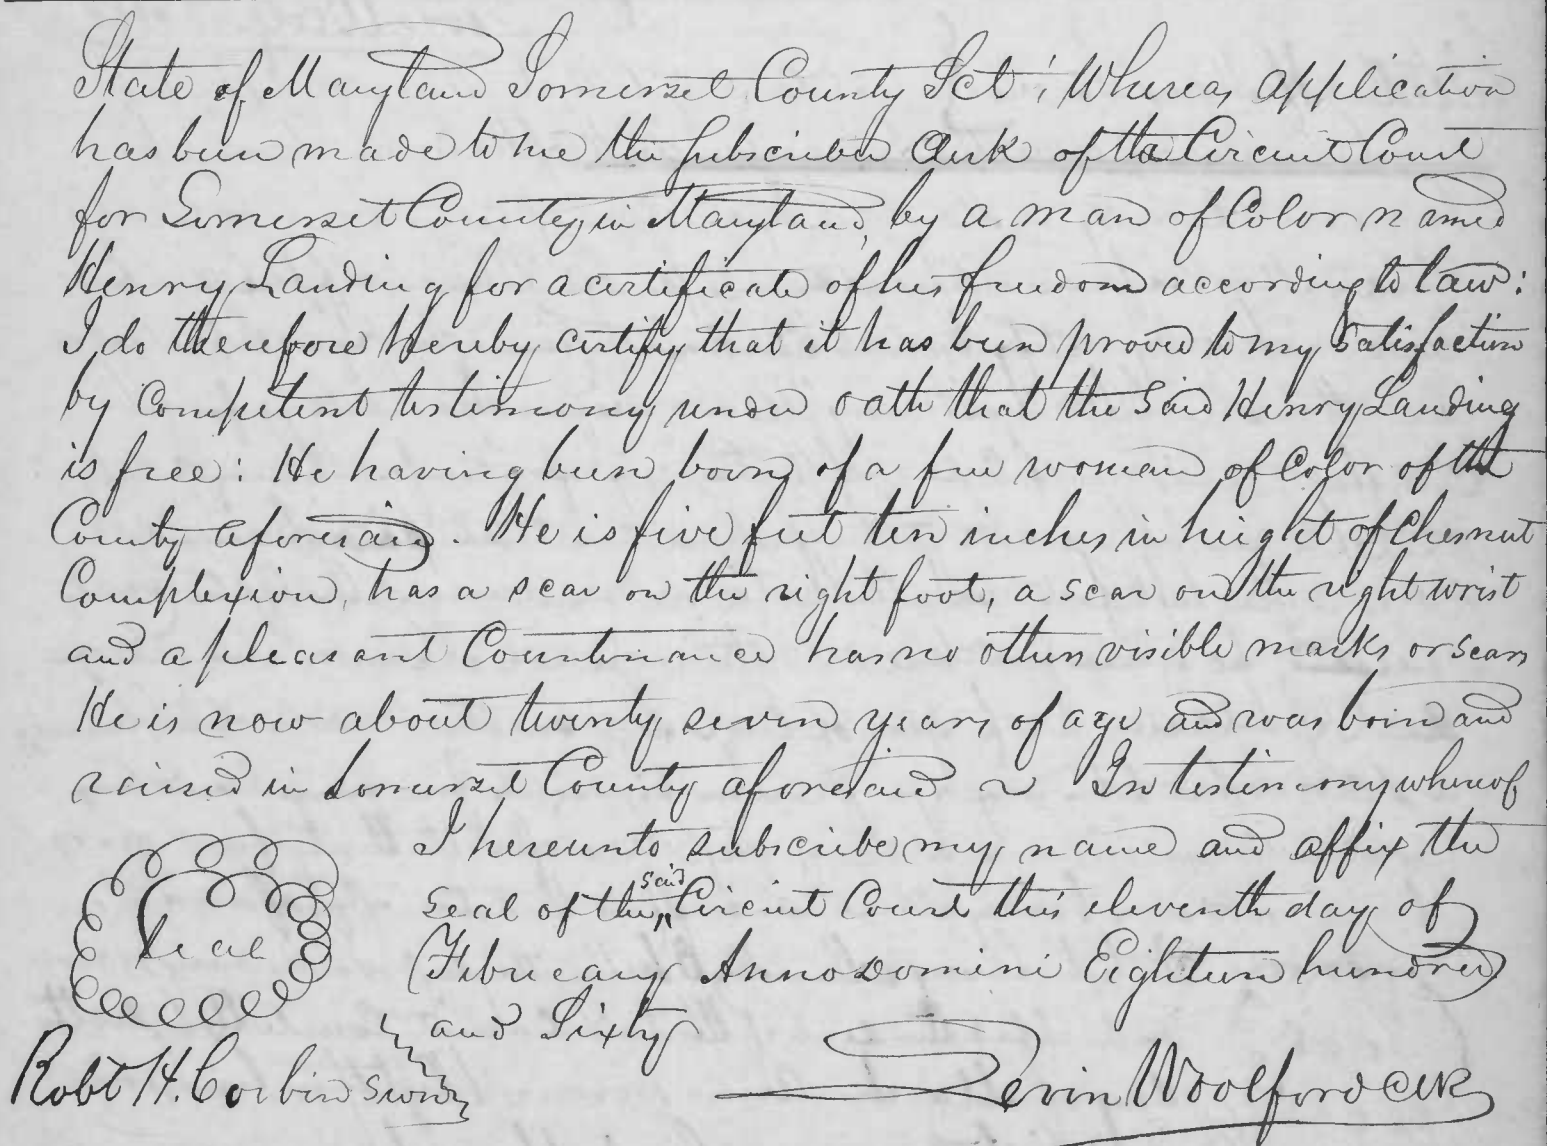 State of Maryland Somerset County Sct; Whereas application
has been made to me the subscriber Clerk of the Circuit Court
for Somerset County in Maryland, by a man of Color named
Henry Landing for a certificate of his freedom according to law:
I do therefore hereby certify that it has been proved to my satisfaction
by Competent testimony under oath that the said Henry Landing
is free: He having been born of a free woman of Color of the
County aforesaid. He is five feet ten inches in height of Chesnut
Complexion, has a scar on the right foot, a scar on the right wrist
and a pleasant Countenance has no other visible marks or scars
He is now about twenty seven years of age and was born and
raised in Somerset County aforesaid ~ In testimony whereof
I hereunto subscribe my name and affix the
seal of the said Circuit Court this eleventh day of
February Anno Domini Eighteen hundred
and Sixty
Seal
Robt H. Corbin sworn
Levin Woolford Clk